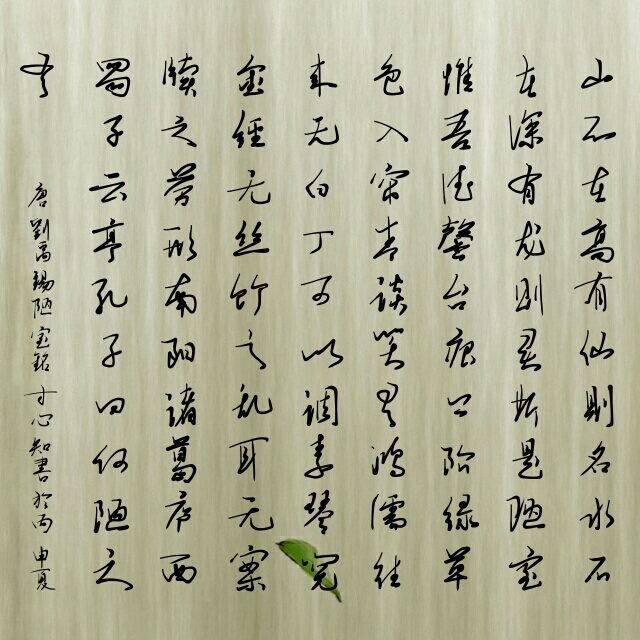 山不在高有仙則名水不
在深有龙則灵斯是陋室
惟吾德馨台痕上阶绿草
色入帘青談笑有鸿儒往
来无白丁可以調素琴阅
金經无丝竹之乱耳无案
牍之劳形南阳諸葛庐西
蜀子云亭孔子曰何陋之
有
唐劉禹錫陋室銘 寸心知書於丙申夏